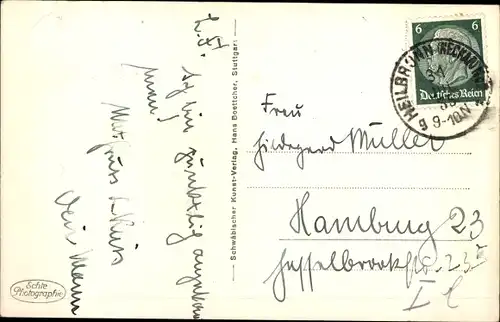 L. H.
Ich bin pünktlich angekommen!
Mit Gruss & Kuss
Dein Mann
Echte
Photographie
Schwäbischer Kunst-Verlag, Hans Boettcher, Stuttgart
6 6
Deutsches Reich
HEILBRONN (NECKAR)
9-10
g
Frau
Hildegard Müller
Hamburg 23
Hasselbrookstr. 23